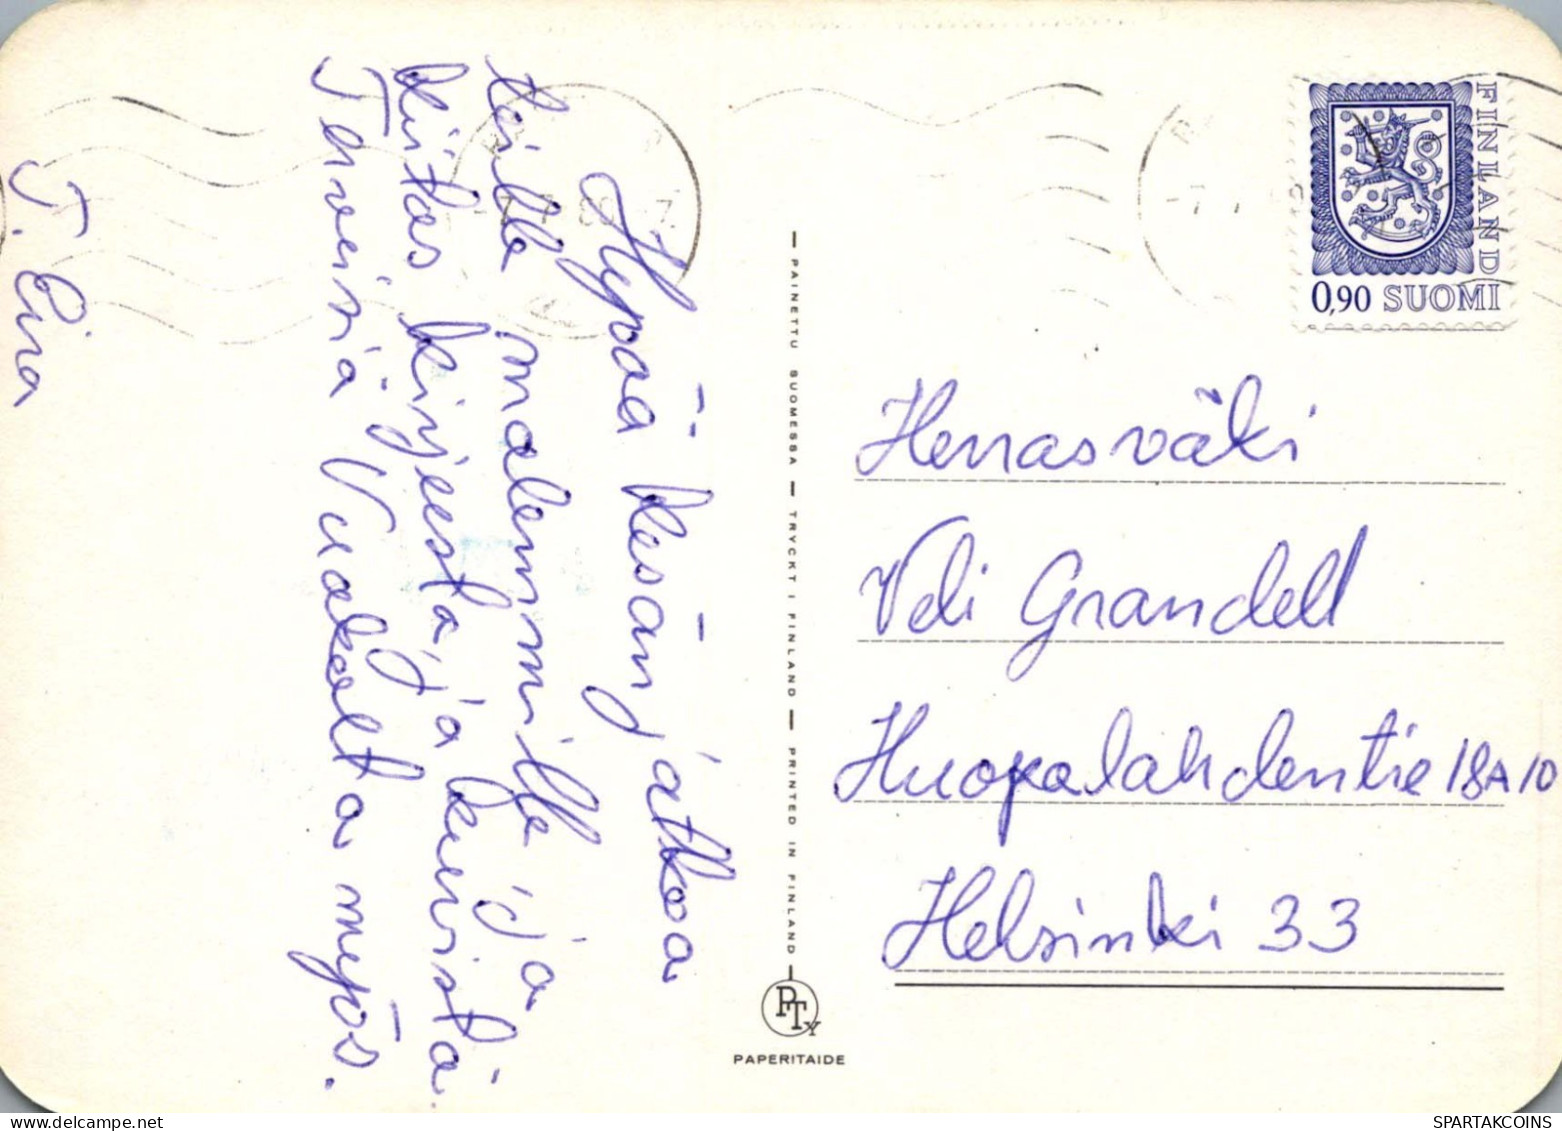 Hyvää kesän jatkoa
teille molemmille ja
kiitos kirjeestä, ja kuvista
Terveisiä Vuokolta myös.
T. Eira
FINLAND
0,90 SUOMI
Herrasväki
Veli Grandell
Huopalahdentie 18A10
Helsinki 33
PAINETTU SUOMESSA — TRYCKT I FINLAND — PRINTED IN FINLAND
PTY
PAPERITAIDE
SPARTAKCOINS